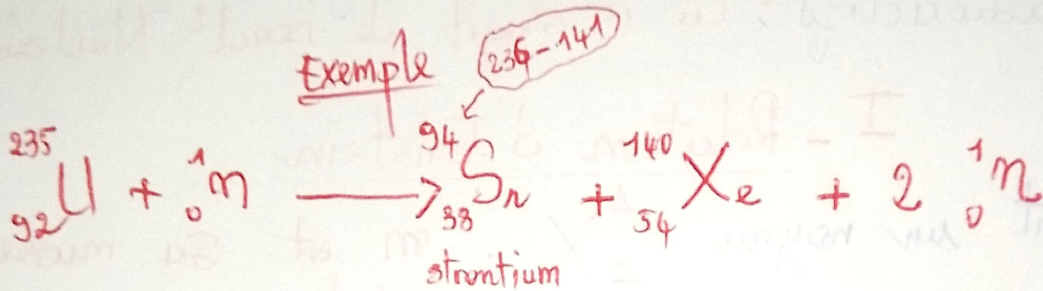 Exemple (236-141)
²³⁵₉₂U + ¹₀n ⟶ ⁹⁴₃₈Sr + ¹⁴⁰₅₄Xe + 2 ¹₀n
strontium